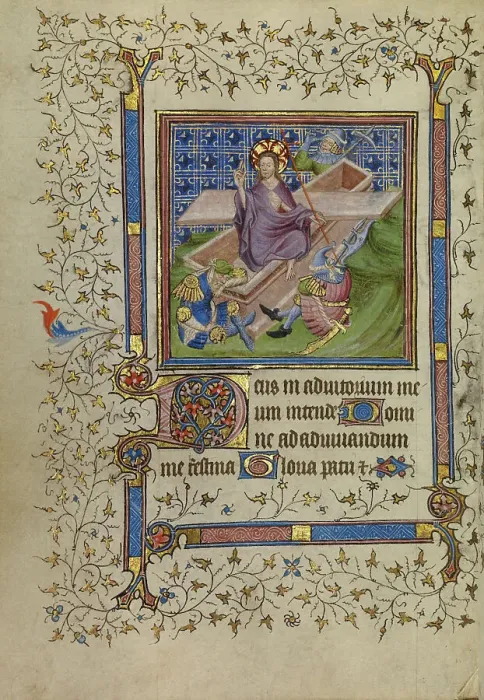 Deus in adiutorium me
um intende Domi
ne ad adiuuandum
me festina Gloria patri ⁊